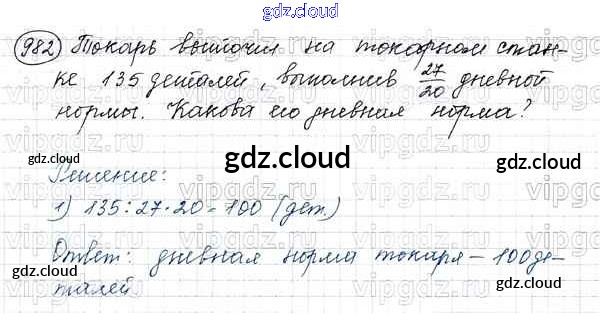 gdz.cloud
982) Токарь выточил на токарном стан-
ке 135 деталей, выполнив 27/20 дневной
нормы. Какова его дневная норма?
gdz.cloud gdz.cloud gdz.cloud
Решение:
1) 135:27·20=100 (дет.)
Ответ: дневная норма токаря – 100 де-
талей.
gdz.cloud gdz.cloud
gdz.cloud